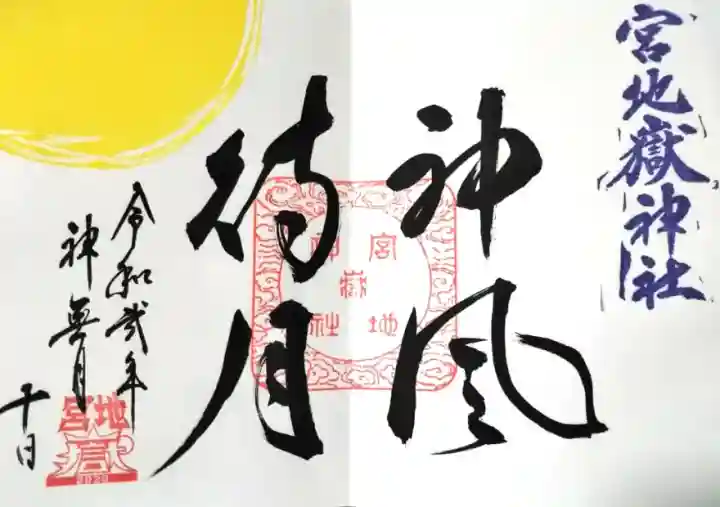 宮地嶽神社
神風
待月
宮地
嶽
神社
令和弐年
神無月
十日
宮地
2020